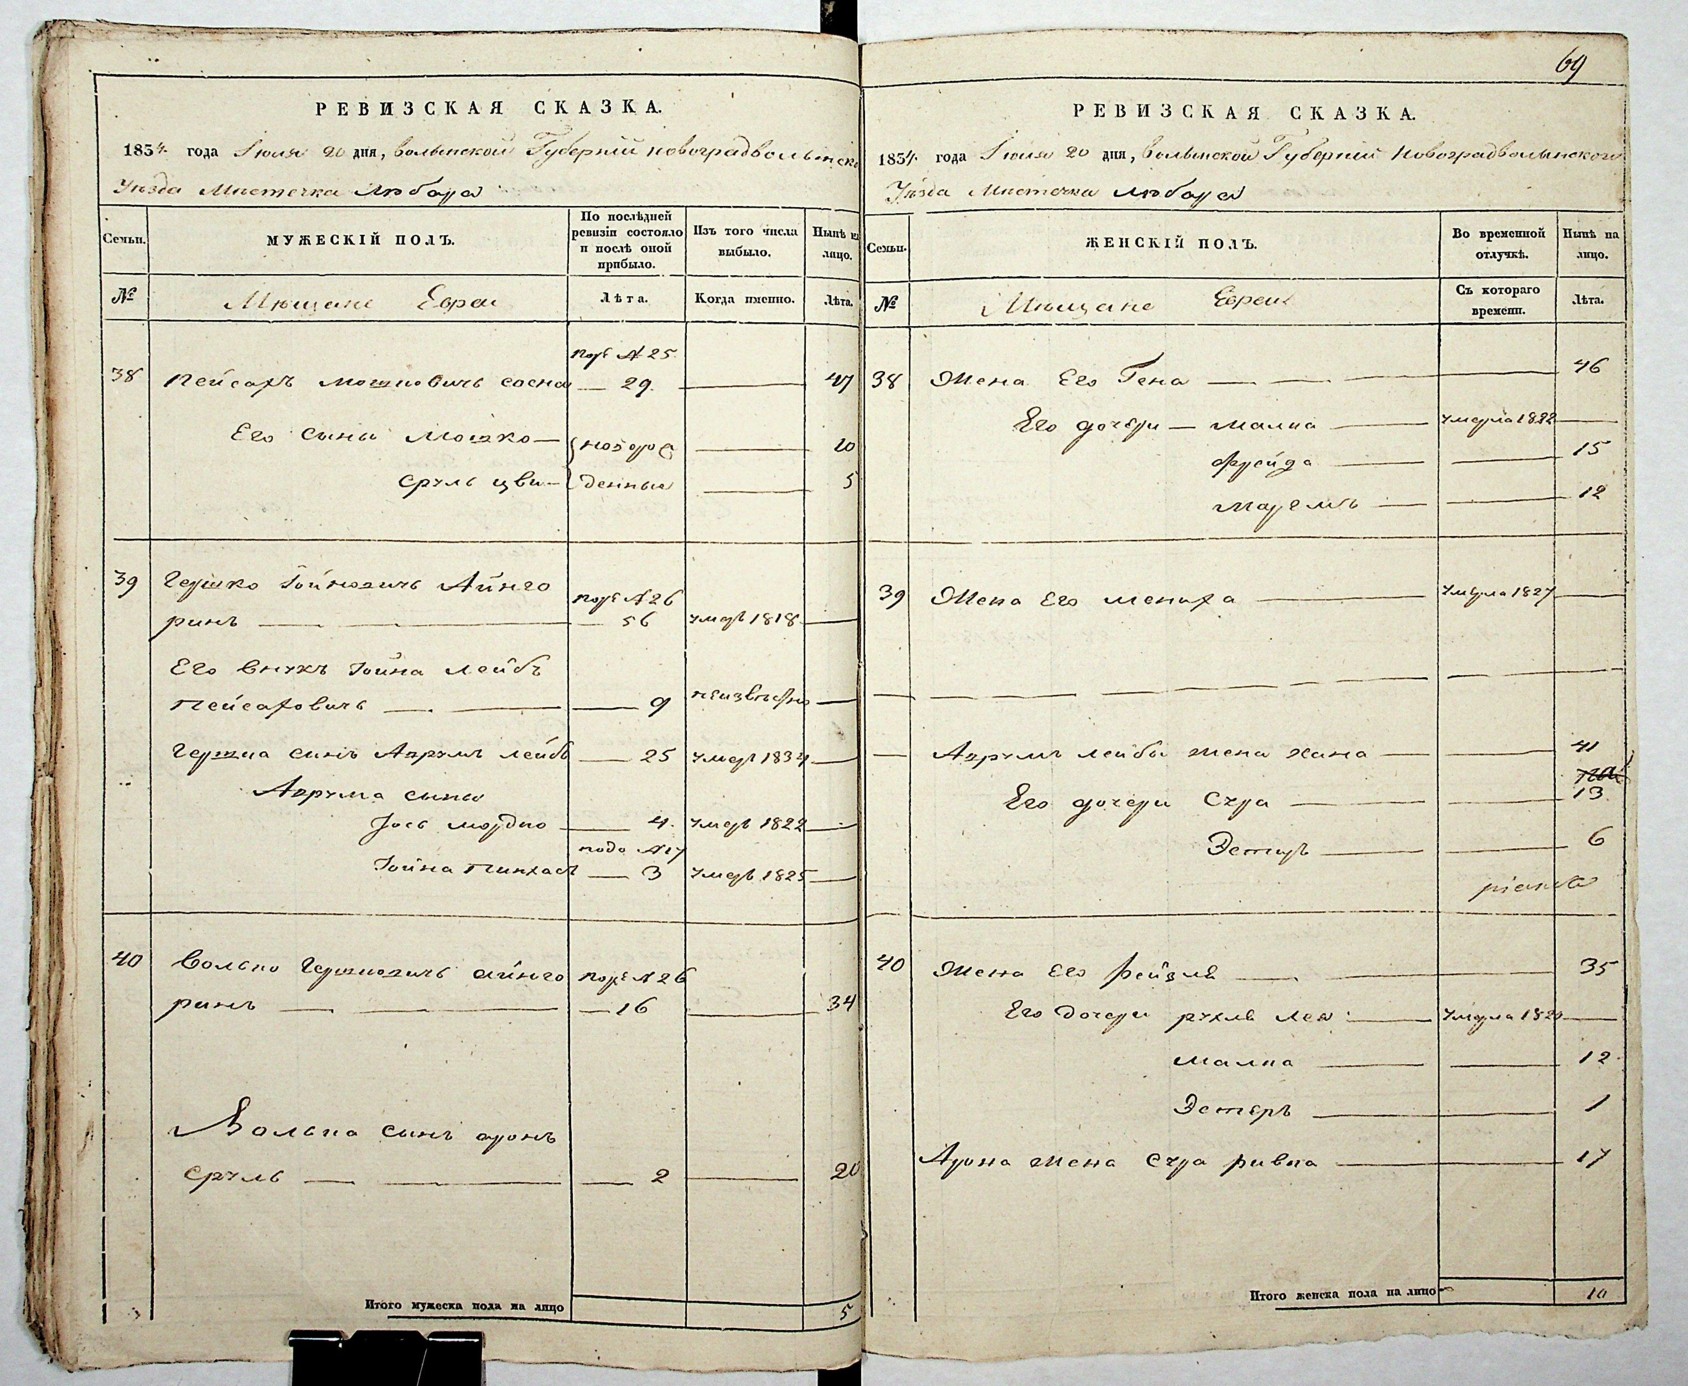 РЕВИЗСКАЯ СКАЗКА.
1834. года Іюля 20 дня, Волынской Губерніи Новоградволынско
Уѣзда Мистечка Любара
Семьи.
МУЖЕСКІЙ ПОЛЪ.
По послѣдней ревизіи состояло и послѣ оной прибыло.
Изъ того числа выбыло.
Нынѣ на лицо.
№
Мѣщане Евреи
Лѣта.
Когда именно.
Лѣта.
38 Пейсахъ Мошковичъ Сосна — 29. — 47
Его сыны Мошко — новоро — 10
Сруль Цви — денные — 5
39 Гершко Іойновичъ Айнго
ринъ — 56 умеръ 1818 —
Его внукъ Іойна Лейбъ
Пейсаховичъ — 9 неизвѣстно —
Гершка сынъ Аврумъ Лейбъ — 25 умеръ 1834 —
Аврума сыны
Іось Мордко — 4. умеръ 1822 —
Іойна Пинхасъ — 3 умеръ 1825 —
40 Волько Гершковичъ Айнго
ринъ — 16 — 34
Волька сынъ Аронъ
Сруль — 2 — 20
Итого мужеска пола на лицо 5
69
РЕВИЗСКАЯ СКАЗКА.
1834. года Іюля 20 дня, Волынской Губерніи Новоградволынского
Уѣзда Мистечка Любара
Семьи.
ЖЕНСКІЙ ПОЛЪ.
Во временной отлучкѣ.
Нынѣ на лицо.
№
Мѣщане Евреи
Съ котораго времени.
Лѣта.
38 Жена Его Гена — 46
Его дочери — Малка — умерла 1822 —
Фрейда — 15
Маремъ — 12
39 Жена Его Мениха — умерла 1827 —
— Аврумъ Лейбы жена Хана — 41
Его дочери Сура — 13
Эстеръ — 6
40 Жена Его Рейзля — 35
Его дочери Рухля Лея — умерла —
Малка — 12
Эстеръ — 1
Арона жена Сура Ривка — 17
Итого женска пола на лицо 10